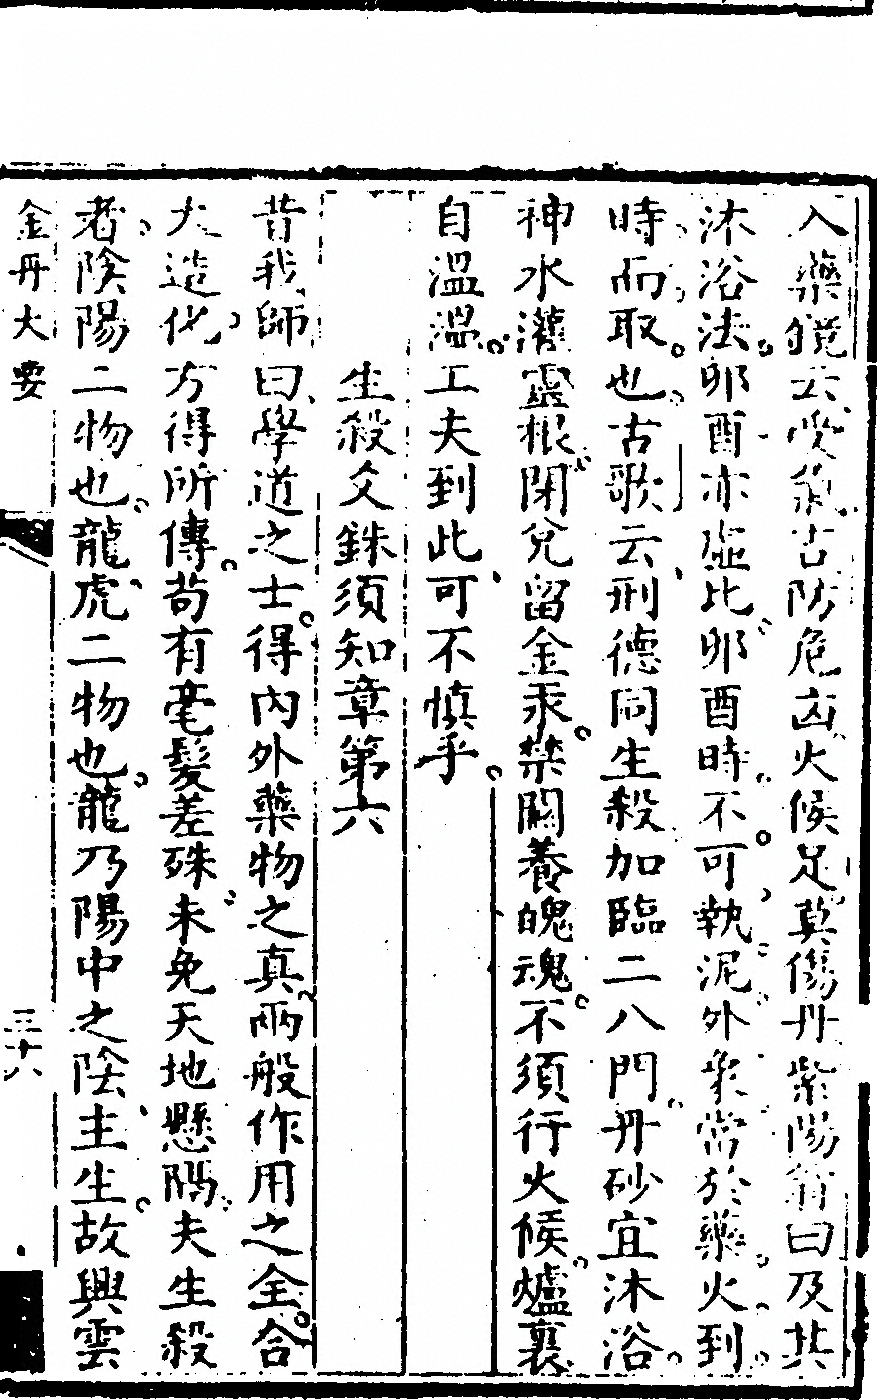 入藥鏡云受氣吉防危凶火候足莫傷丹紫陽翁曰及其
沐浴法卯酉亦虛比卯酉時不可執泥外象當於藥火到
時而取也古歌云刑德同生殺加臨二八門丹砂宜沐浴
神水灌靈根閉兌留金汞禁關養魄魂不須行火候爐裏
自溫溫工夫到此可不慎乎
生殺爻銖須知章第六
昔我師曰學道之士得內外藥物之真兩般作用之全合
大造化方得所傳苟有毫髮差殊未免天地懸隔夫生殺
者陰陽二物也龍虎二物也龍乃陽中之陰主生故興雲
金丹大要
三十八